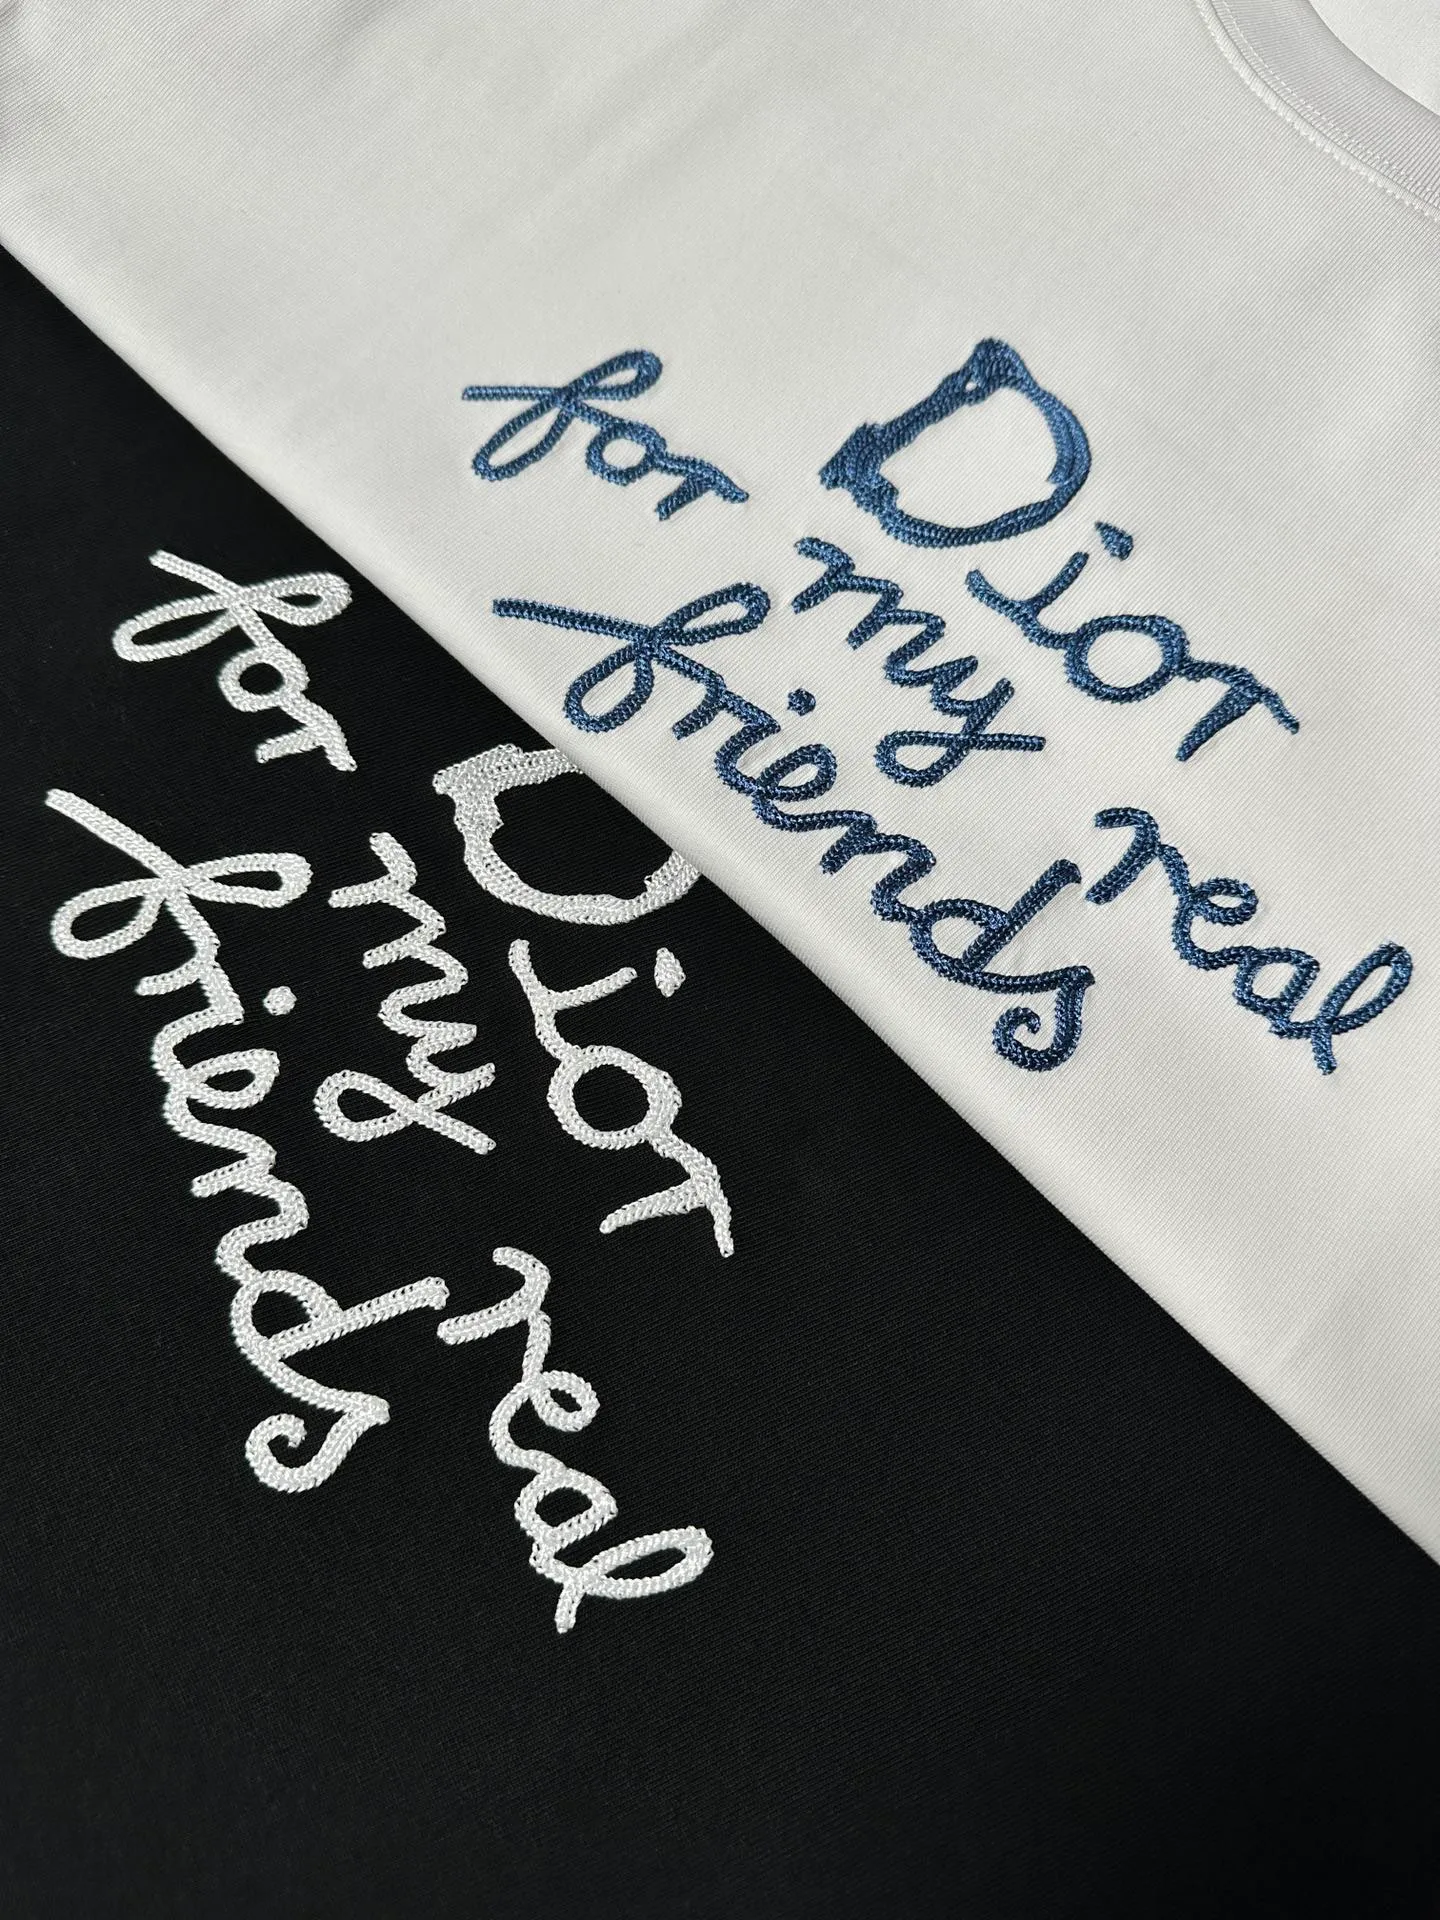 Dior
for my real
friends
Dior
for my real
friends